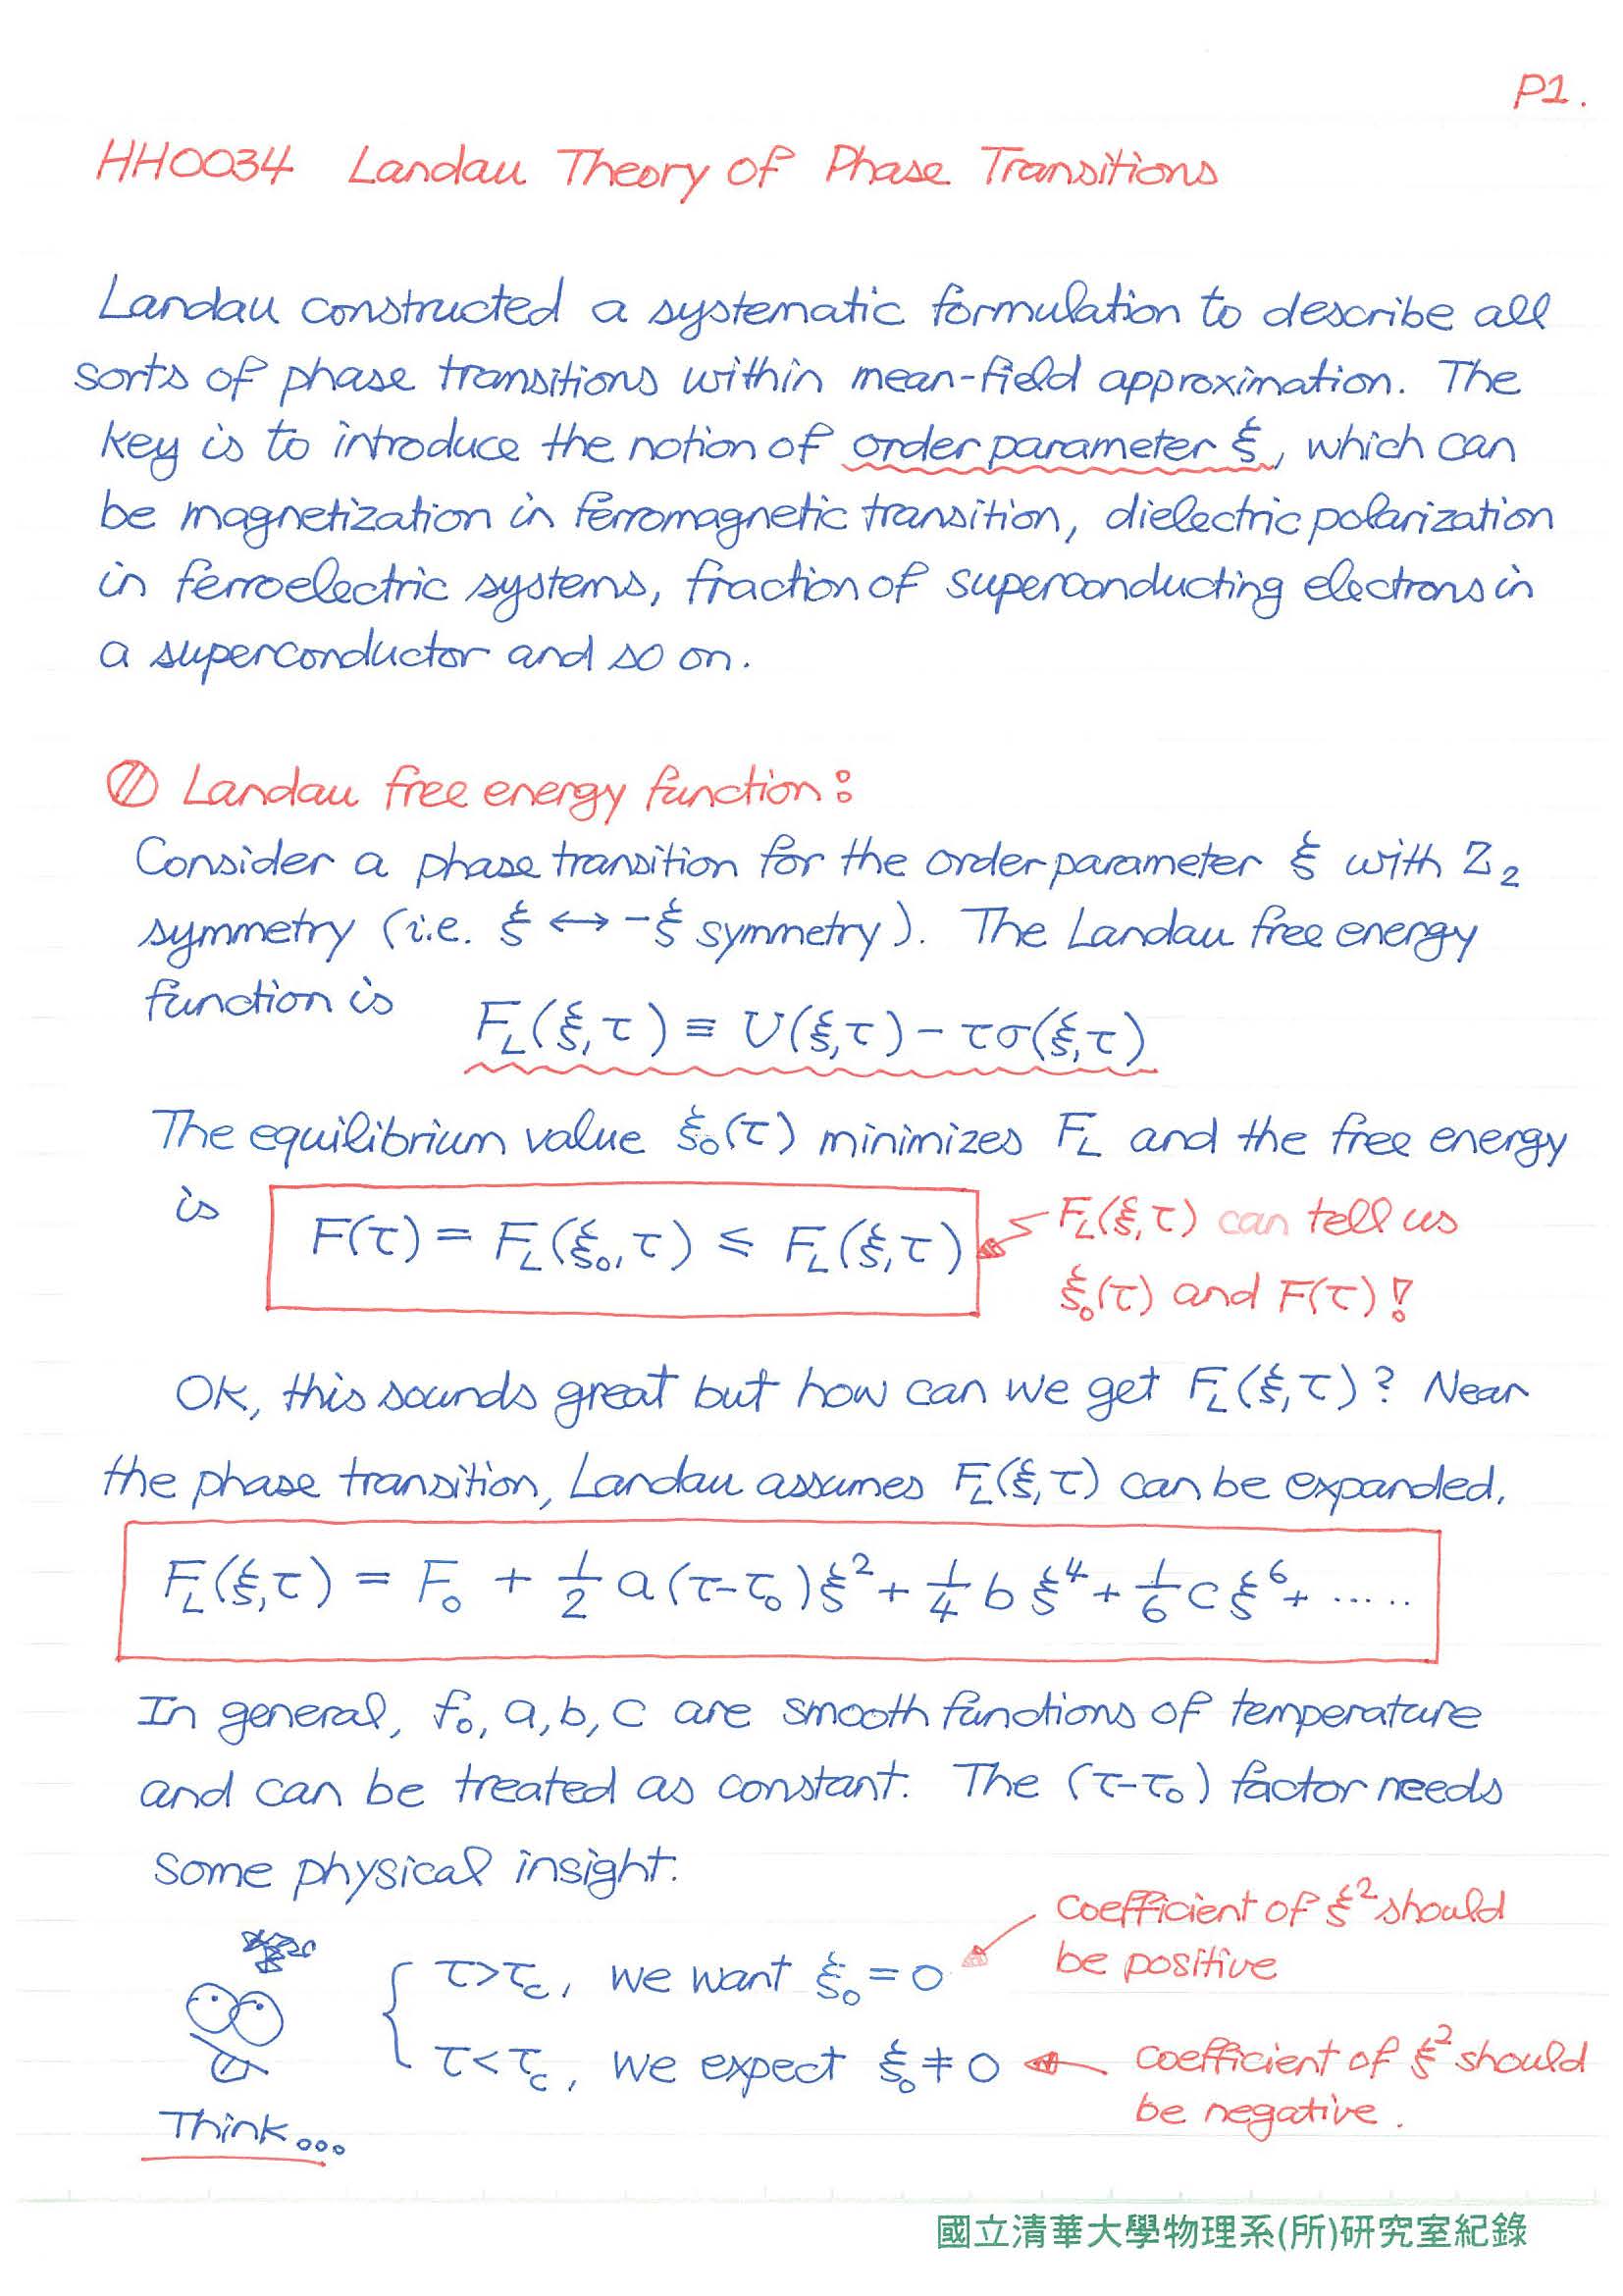 P1.
HH0034 Landau Theory of Phase Transitions
Landau constructed a systematic formulation to describe all
sorts of phase transitions within mean-field approximation. The
key is to introduce the notion of order parameter ξ, which can
be magnetization in ferromagnetic transition, dielectric polarization
in ferroelectric systems, fraction of superconducting electrons in
a superconductor and so on.
Landau free energy function:
Consider a phase transition for the order parameter ξ with Z₂
symmetry (i.e. ξ ↔ -ξ symmetry). The Landau free energy
function is
F_L(ξ,τ) ≡ U(ξ,τ) - τσ(ξ,τ)
The equilibrium value ξ₀(τ) minimizes F_L and the free energy
is
F(τ) = F_L(ξ₀,τ) ≤ F_L(ξ,τ)
F_L(ξ,τ) can tell us
ξ₀(τ) and F(τ)!
OK, this sounds great but how can we get F_L(ξ,τ)? Near
the phase transition, Landau assumes F_L(ξ,τ) can be expanded.
F_L(ξ,τ) = F₀ + ½ a(τ-τ₀)ξ² + ¼ b ξ⁴ + ⅙ c ξ⁶ + .....
In general, f₀, a, b, c are smooth functions of temperature
and can be treated as constant. The (τ-τ₀) factor needs
some physical insight.
τ>τ_c, we want ξ₀ = 0
coefficient of ξ² should
be positive
τ<τ_c, we expect ξ₀ ≠ 0
coefficient of ξ² should
be negative.
Think...
國立清華大學物理系(所)研究室紀錄